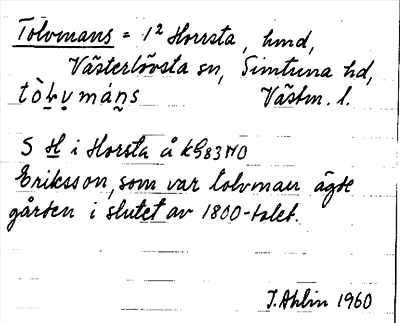 Tolvmans = 1² Horrsta, hmd,
Västerlövsta sn, Simtuna hd,
tòḷṿmáṇs Västm. l.
S H i Horsta å kG83NO
Eriksson, som var tolvman ägde
gården i slutet av 1800-talet.
J. Ahlin 1960